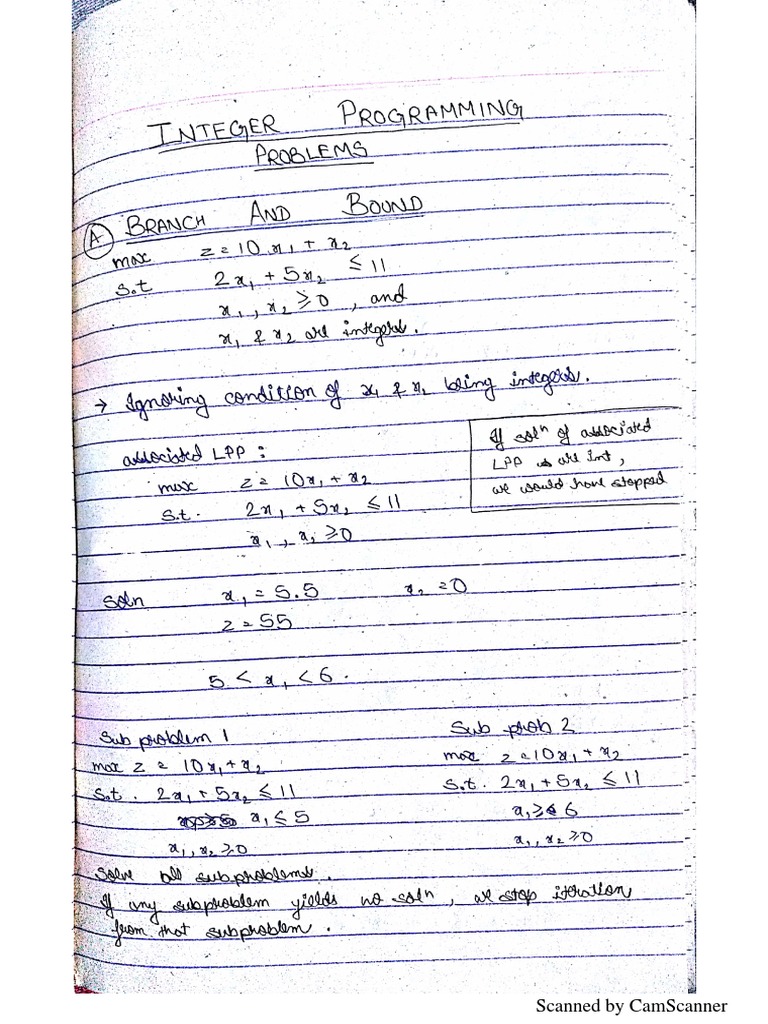 INTEGER PROGRAMMING
PROBLEMS
(A) BRANCH AND BOUND
max z = 10x₁ + x₂
s.t 2x₁ + 5x₂ ≤ 11
x₁, x₂ ≥ 0, and
x₁ & x₂ are integers.
→ Ignoring condition of x₁ & x₂ being integers.
associated LPP :
max z = 10x₁ + x₂
s.t. 2x₁ + 5x₂ ≤ 11
x₁, x₂ ≥ 0
If solⁿ of associated
LPP are int,
we would have stopped
Soln x₁ = 5.5 x₂ = 0
z = 55
5 < x₁ < 6.
Sub problem 1
max z = 10x₁ + x₂
s.t. 2x₁ + 5x₂ ≤ 11
x₁ ≤ 5
x₁, x₂ ≥ 0
Sub prob 2
max z = 10x₁ + x₂
s.t. 2x₁ + 5x₂ ≤ 11
x₁ ≥ 6
x₁, x₂ ≥ 0
Solve all subproblems.
If any subproblem yields no solⁿ, we stop iteration
from that subproblem.
Scanned by CamScanner